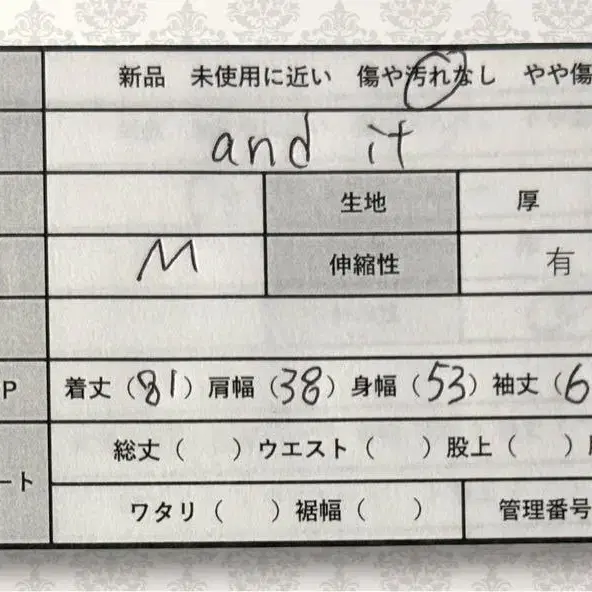 新品 未使用に近い 傷や汚れなし やや傷
and it
生地 厚
M 伸縮性 有
P 着丈（81）肩幅（38）身幅（53）袖丈（6
総丈（ ）ウエスト（ ）股上（ ）
ート
ワタリ（ ）裾幅（ ） 管理番号